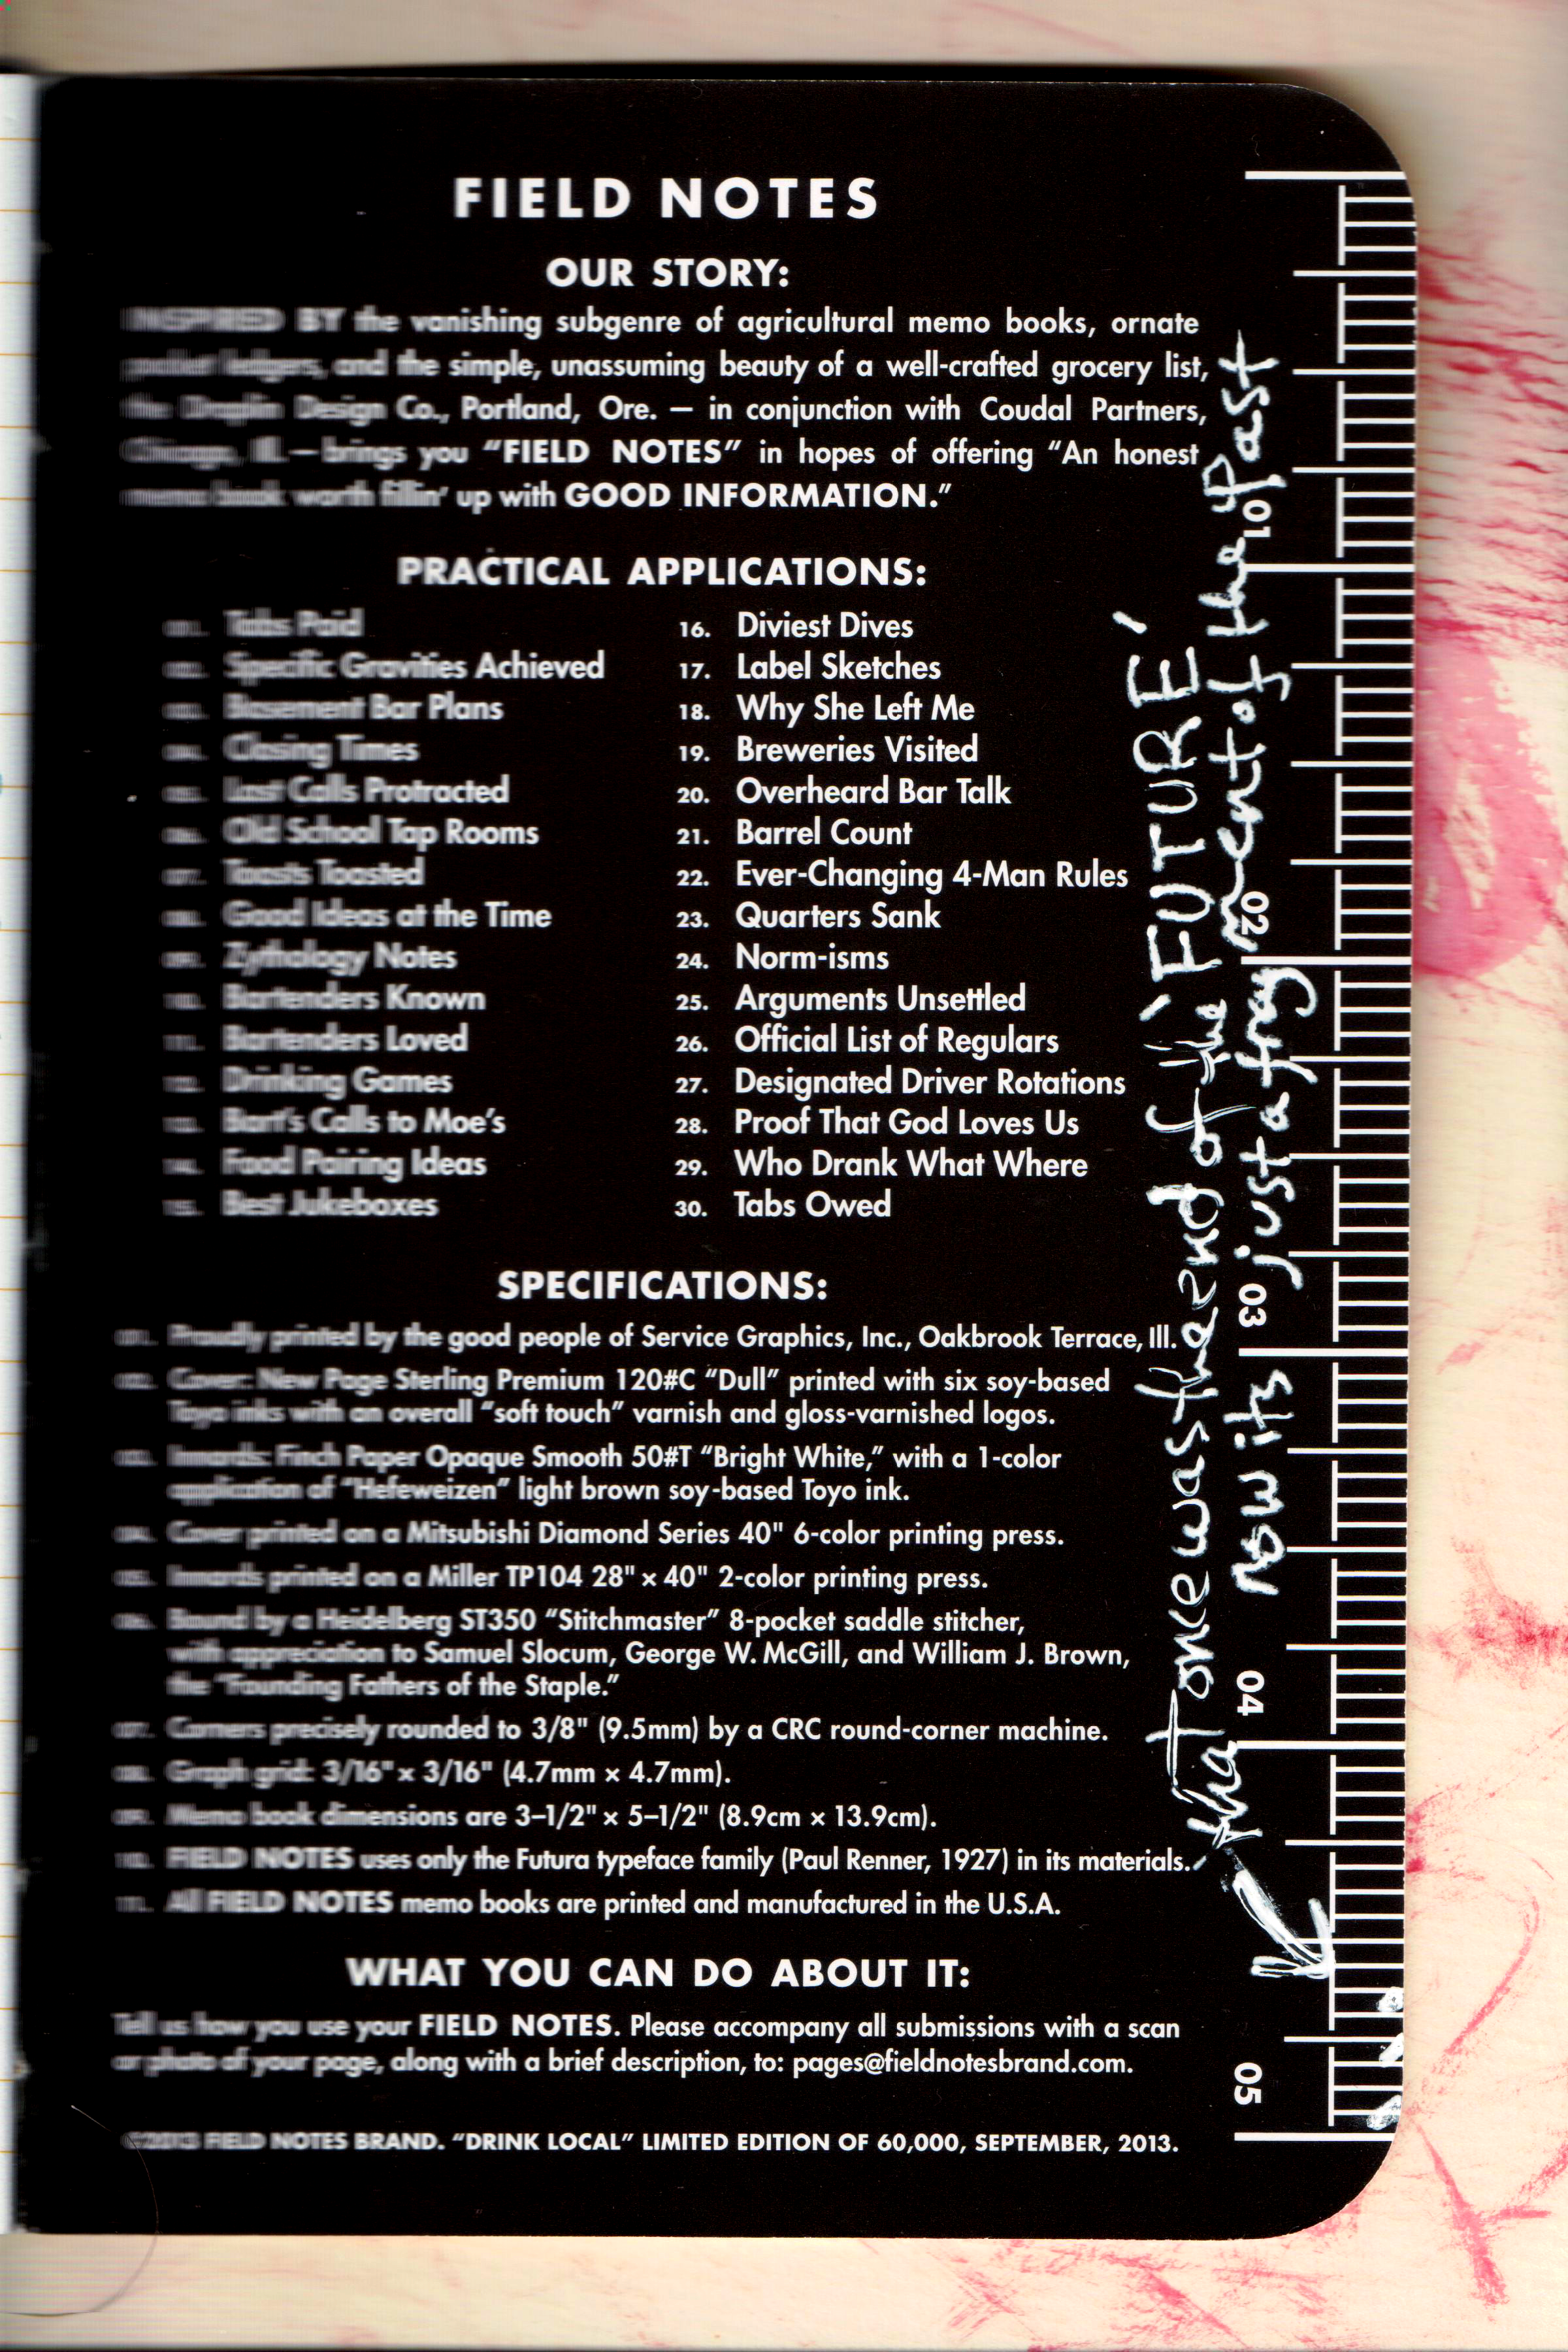 FIELD NOTES
OUR STORY:
INSPIRED BY the vanishing subgenre of agricultural memo books, ornate
pocket ledgers, and the simple, unassuming beauty of a well-crafted grocery list,
the Draplin Design Co., Portland, Ore. — in conjunction with Coudal Partners,
Chicago, Ill. — brings you “FIELD NOTES” in hopes of offering “An honest
memo book worth fillin’ up with GOOD INFORMATION.”
PRACTICAL APPLICATIONS:
001. Tabs Paid
002. Specific Gravities Achieved
003. Basement Bar Plans
004. Closing Times
005. Last Calls Protracted
006. Old School Tap Rooms
007. Toasts Toasted
008. Good Ideas at the Time
009. Zythology Notes
10. Bartenders Known
11. Bartenders Loved
12. Drinking Games
13. Bart’s Calls to Moe’s
14. Food Pairing Ideas
15. Best Jukeboxes
16. Diviest Dives
17. Label Sketches
18. Why She Left Me
19. Breweries Visited
20. Overheard Bar Talk
21. Barrel Count
22. Ever-Changing 4-Man Rules
23. Quarters Sank
24. Norm-isms
25. Arguments Unsettled
26. Official List of Regulars
27. Designated Driver Rotations
28. Proof That God Loves Us
29. Who Drank What Where
30. Tabs Owed
SPECIFICATIONS:
001. Proudly printed by the good people of Service Graphics, Inc., Oakbrook Terrace, Ill.
002. Cover: New Page Sterling Premium 120#C “Dull” printed with six soy-based
Toyo inks with an overall “soft touch” varnish and gloss-varnished logos.
003. Innards: Finch Paper Opaque Smooth 50#T “Bright White,” with a 1-color
application of “Hefeweizen” light brown soy-based Toyo ink.
004. Cover printed on a Mitsubishi Diamond Series 40" 6-color printing press.
005. Innards printed on a Miller TP104 28" × 40" 2-color printing press.
006. Bound by a Heidelberg ST350 “Stitchmaster” 8-pocket saddle stitcher,
with appreciation to Samuel Slocum, George W. McGill, and William J. Brown,
the “Founding Fathers of the Staple.”
007. Corners precisely rounded to 3/8" (9.5mm) by a CRC round-corner machine.
008. Graph grid: 3/16" × 3/16" (4.7mm × 4.7mm).
009. Memo book dimensions are 3–1/2" × 5–1/2" (8.9cm × 13.9cm).
10. FIELD NOTES uses only the Futura typeface family (Paul Renner, 1927) in its materials.
11. All FIELD NOTES memo books are printed and manufactured in the U.S.A.
WHAT YOU CAN DO ABOUT IT:
Tell us how you use your FIELD NOTES. Please accompany all submissions with a scan
or photo of your page, along with a brief description, to: pages@fieldnotesbrand.com.
©2013 FIELD NOTES BRAND. “DRINK LOCAL” LIMITED EDITION OF 60,000, SEPTEMBER, 2013.
what once was the end of the 'FUTURE'
now its just a fragment of the Past
01
02
03
04
05